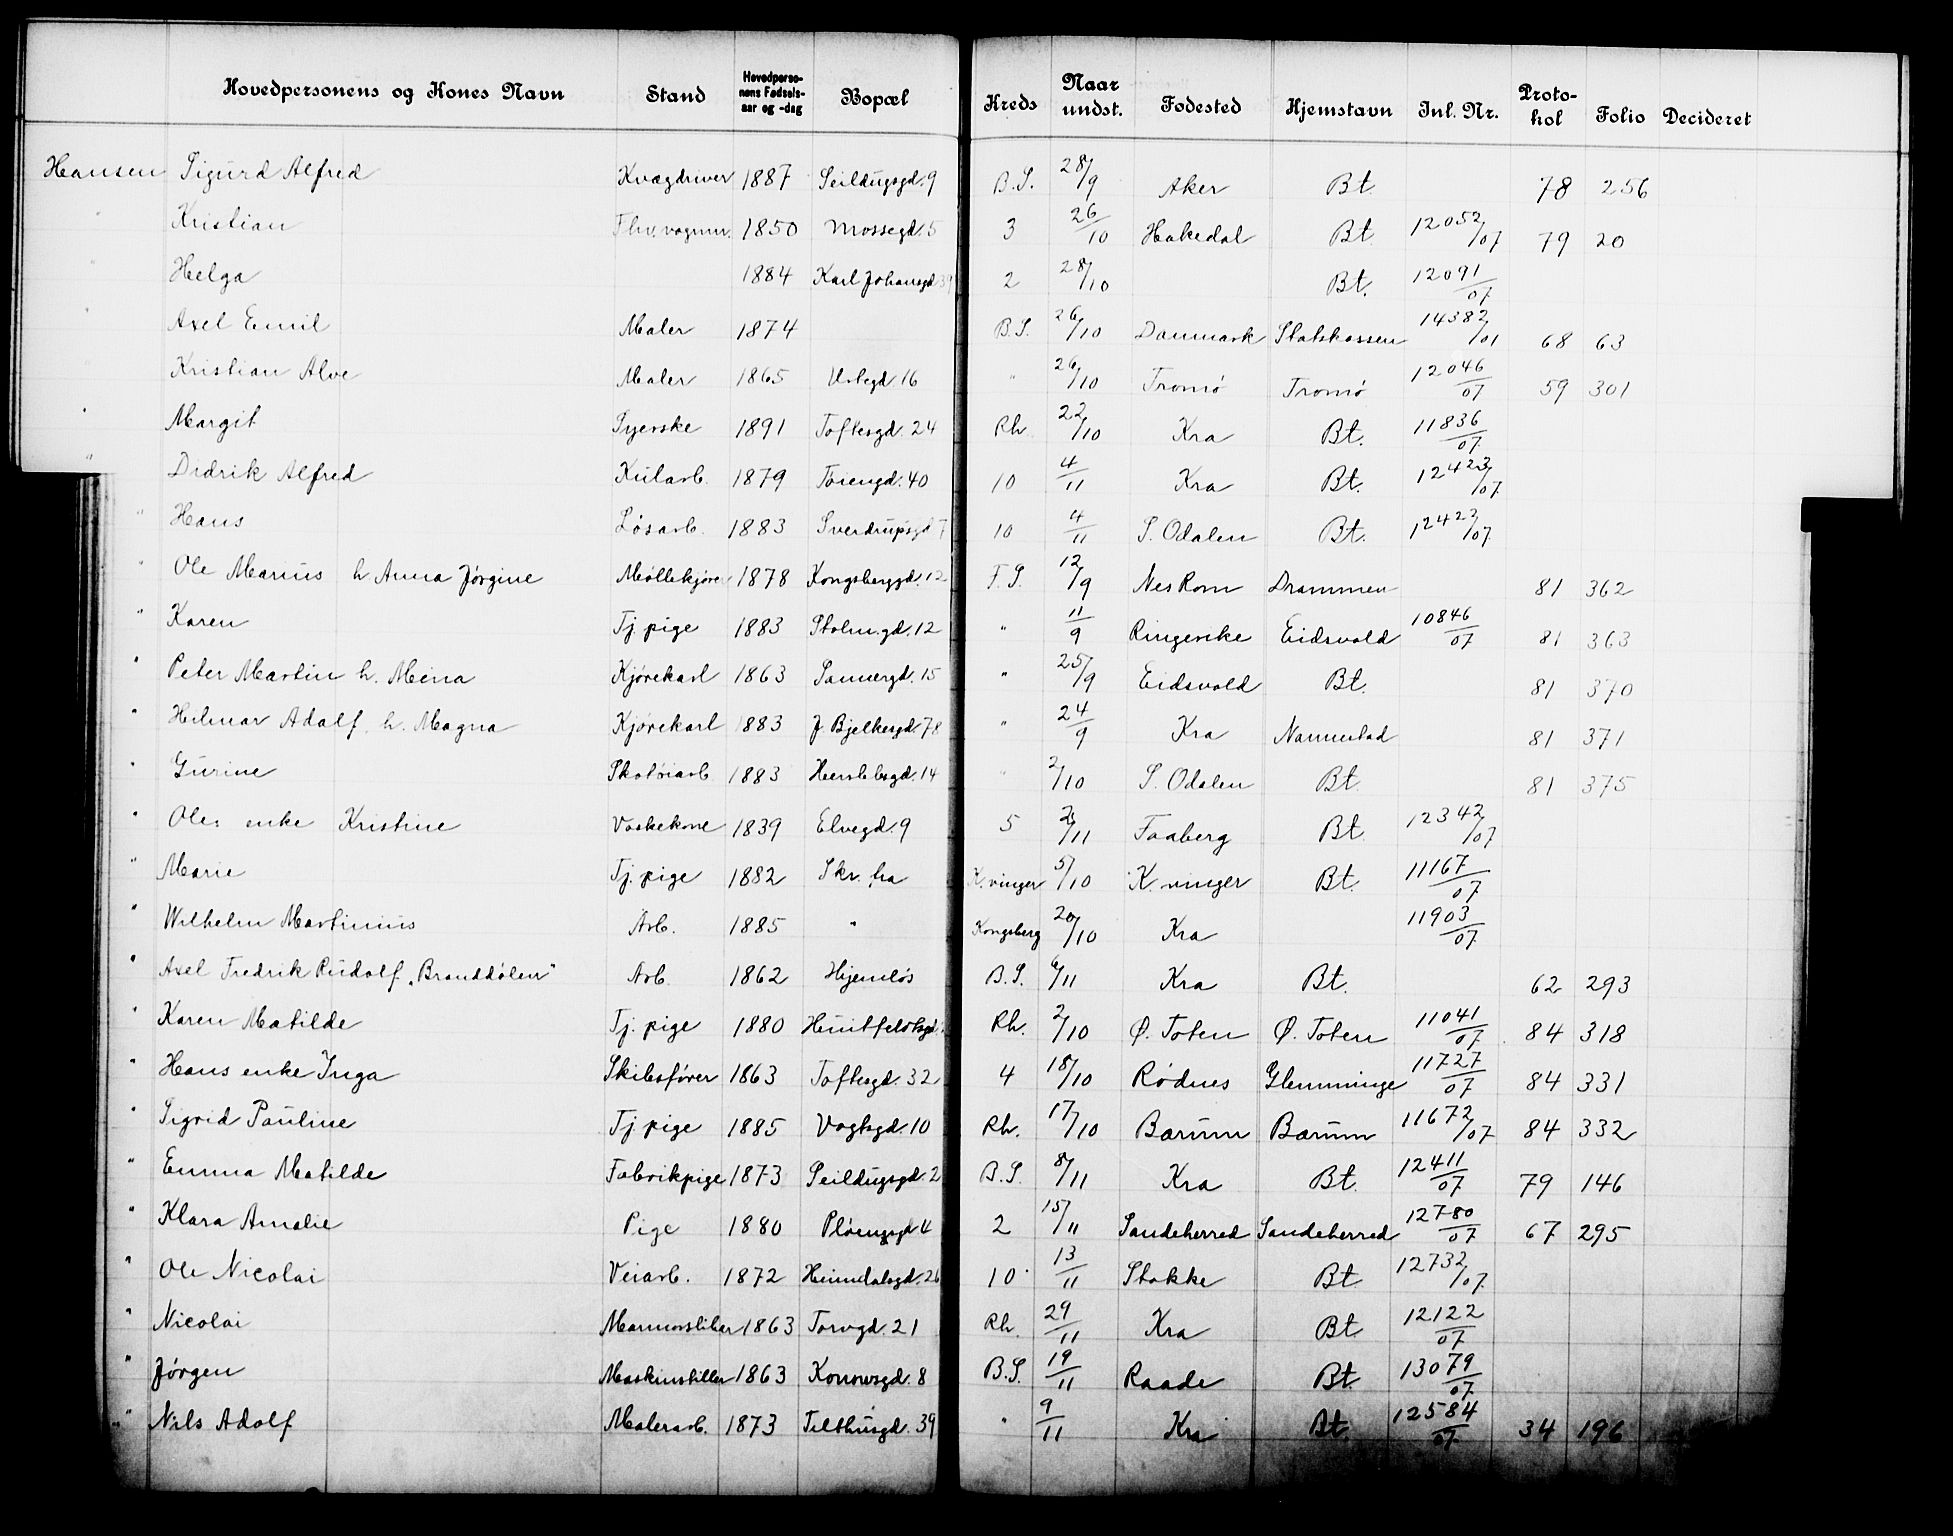 Hovedpersonens og Kones Navn Stand Hovedpersonens Fødsels-aar og -dag Bopæl Kreds Naar undst. Fødested Hjemstavn Inl. Nr. Protokol Folio Decideret
Hansen Sigurd Alfred Kvægdriver 1887 Seildugsgd. 9 B.S. 28/9 Aker Bt. 78 256
" Kristian 1850 Mossegd. 5 3 26/10 Hakedal Bt. 12052/07 79 20
" Helga 1884 Karl Johansgd 39 2 28/10 Bt. 12091/07
" Axel Emil Maler 1874 B.S. 26/10 Danmark Statskassen 14382/01 68 63
Kristian Alve Maler 1865 Urtegd 16 " 26/10 Tromø Tromø 12046/07 59 301
" Margit Syerske 1891 Toftesgd. 24 Rh. 22/10 Kra Bt. 11836/07
" Didrik Alfred Kularb. 1879 Tøiengd. 40 10 4/11 Kra Bt. 12423/07
" Hans Løsarb. 1883 Sverdrupsgd 7 10 4/11 S. Odalen Bt. 12423/07
" Ole Marius h. Anna Jørgine Møllekjører 1878 Kongsberggd. 12 F.S. 12/9 Nes Rom Drammen 81 362
" Karen Tj. pige 1883 Stolm.gd. 12 " 11/9 Ringerike Eidsvold 10846/07 81 363
" Peter Martin h. Mina Kjørekarl 1863 Sannergd. 15 " 25/9 Eidsvold Bt. 81 370
" Hilmar Adolf h. Magna Kjørekarl 1883 J. Bjelkesgd. 78 " 24/9 Kra Nannestad 81 371
" Gurine Skotøiarb 1883 Herslebsgd. 14 " 2/10 S. Odalen Bt. 81 375
" Ole, enke Kristine Vaskekone 1839 Elvegd. 9 5 2/11 Faaberg Bt. 12342/07
" Marie Tj. pige 1882 Skr. fra K.vinger 5/10 K.vinger Bt. 11167/07
" Wilhelm Martinius Arb. 1885 " Kongsberg 20/10 Kra 11903/07
" Axel Fredrik Rudolf "Branddølen" Arb. 1862 Hjemløs B.S. 6/11 Kra Bt. 62 293
" Karen Matilde Tj. pige 1880 Huitfeldtsgd. Rh. 2/10 Ø. Toten Ø. Toten 11041/07 84 318
" Hans enke Inga Skibsfører 1863 Toftesgd. 32 4 18/10 Rødnes Glemminge 11727/07 84 331
" Sigrid Pauline Tj. pige 1885 Vogtsgd. 10 Rh. 17/10 Bærum Bærum 11672/07 84 332
" Emma Matilde Fabrikpige 1873 Seildugsgd. 2 B.S. 8/11 Kra Bt. 12411/07 79 146
" Klara Amalie Pige 1880 Pløensgd 4 2 15/11 Sandeherred Sandeherred 12780/07 67 295
" Ole Nicolai Veiarb. 1872 Heimdalsgd. 26 10 13/11 Stokke Bt. 12732/07
" Nicolai Marmorsliber 1863 Torvgd. 21 Rh. 29/11 Kra Bt. 12122/07
" Jørgen Maskinstiller 1863 B.S. 19/11 Raade Bt. 13079/07
" Nils Adolf Malerarb. 1873 Telthusgd. 39 " 9/11 Kra Bt. 12584/07 34 196